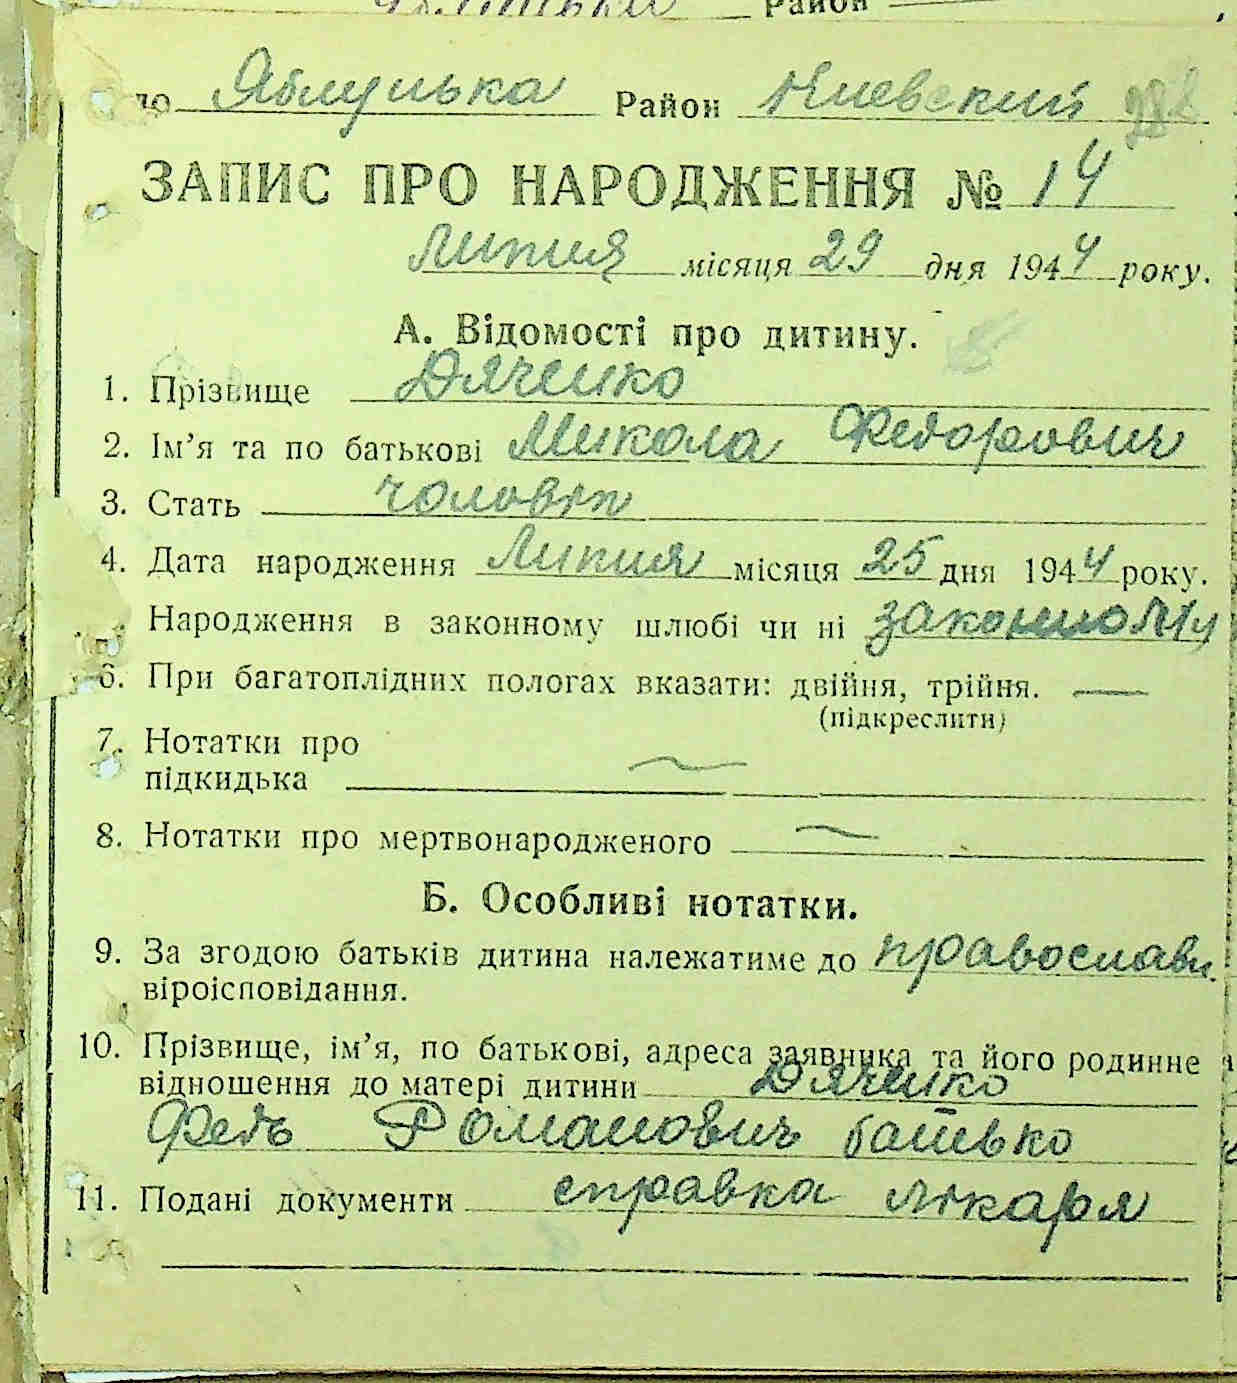 Район
ло Яблунька Район Киевский 288
ЗАПИС ПРО НАРОДЖЕННЯ № 14
Липня місяця 29 дня 1944 року.
А. Відомості про дитину.
1. Прізвище Дяченко
2. Ім’я та по батькові Микола Федорович
3. Стать чоловіп
4. Дата народження Липня місяця 25 дня 1944 року.
Народження в законному шлюбі чи ні законному
6. При багатоплідних пологах вказати: двійня, трійня. —
(підкреслити)
7. Нотатки про
підкидька —
8. Нотатки про мертвонародженого —
Б. Особливі нотатки.
9. За згодою батьків дитина належатиме до православн.
віроісповідання.
10. Прізвище, ім’я, по батькові, адреса заявника та його родинне
відношення до матері дитини Дяченко
Федь Романович батько
11. Подані документи справка лікаря